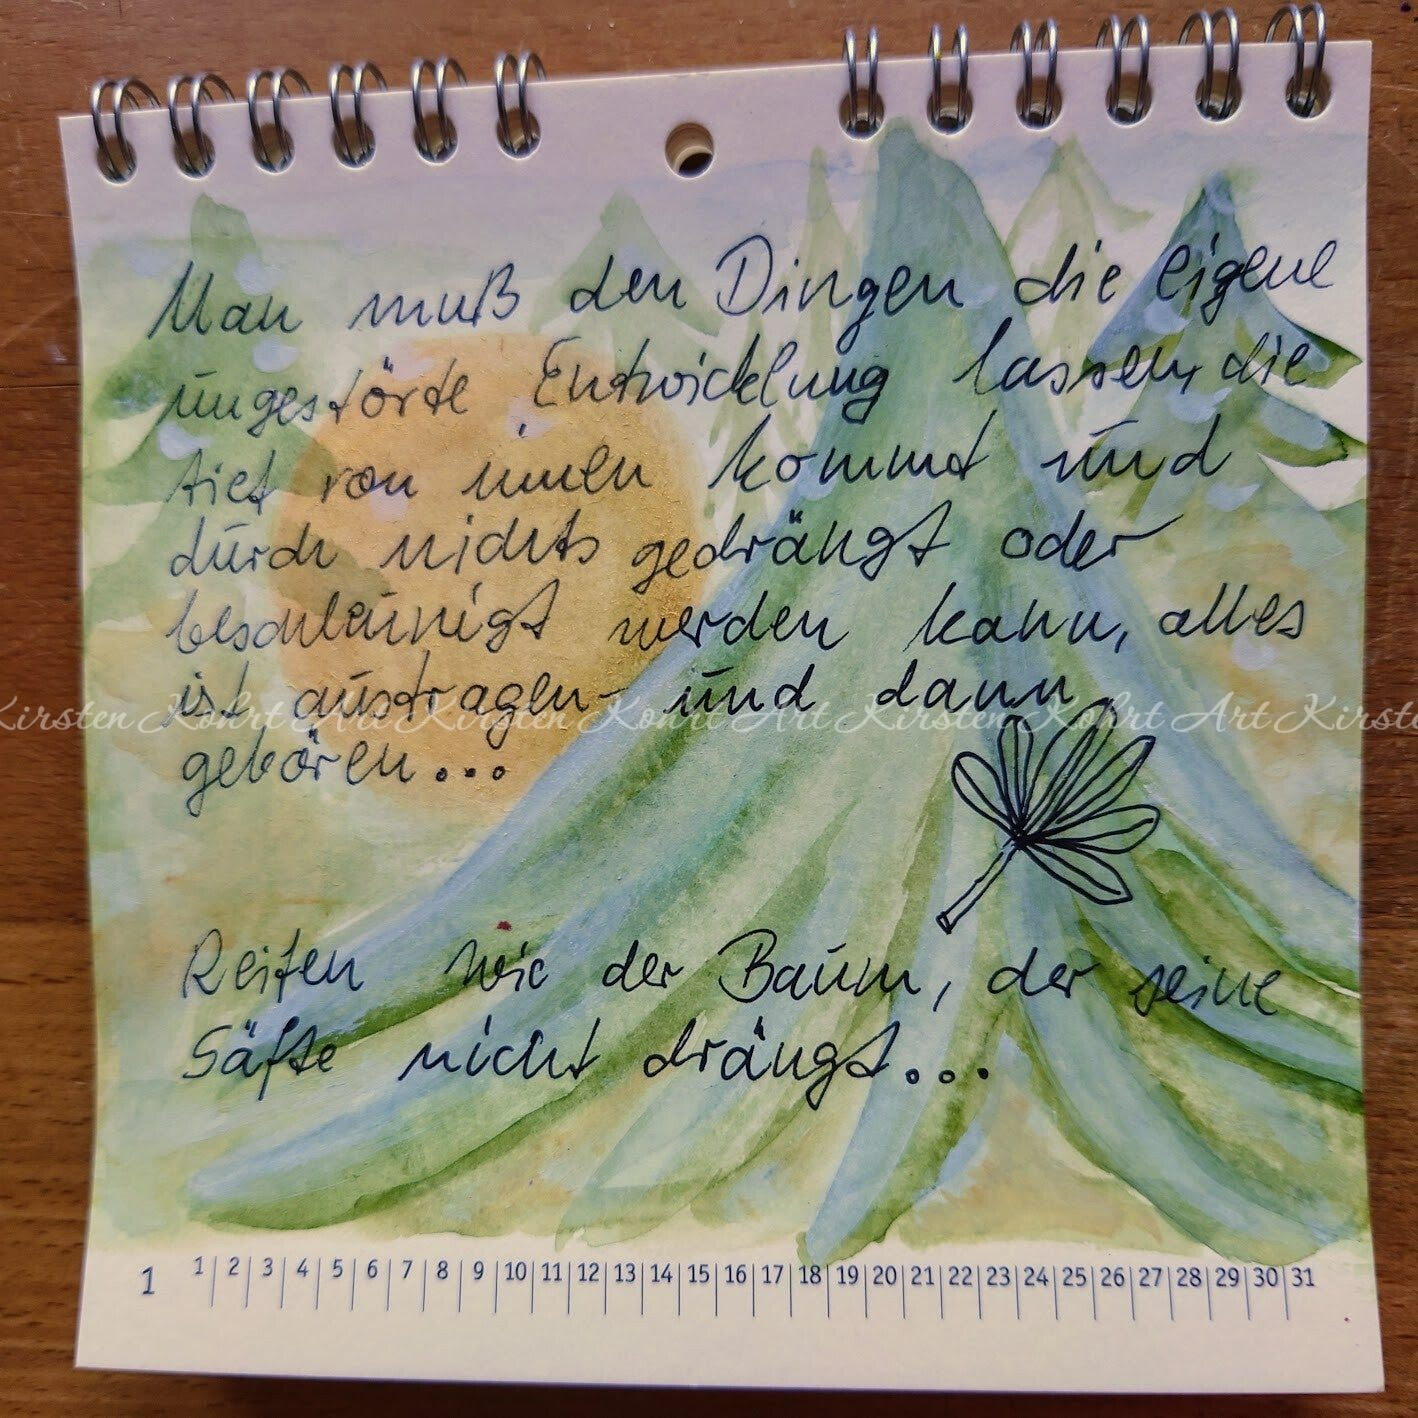 Man muß den Dingen die eigene
ungestörte Entwicklung lassen, die
tief von innen kommt und
durch nichts gedrängt oder
beschleunigt werden kann, alles
ist austragen - und dann
Kirsten Kohrt Art Kirsten Kohrt Art Kirsten Kohrt Art Kirste
gebären...
Reifen wie der Baum, der seine
Säfte nicht drängt...
1 1 2 3 4 5 6 7 8 9 10 11 12 13 14 15 16 17 18 19 20 21 22 23 24 25 26 27 28 29 30 31